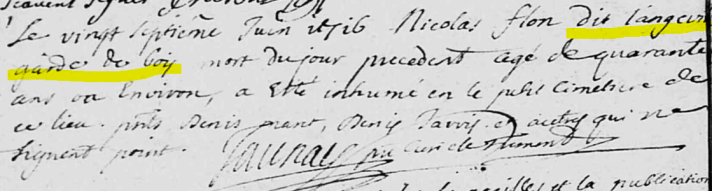 Le vingt septiême Juin 1716 Nicolas flon dit l'angevin
garde de bois mort du jour precedent agé de quarante
ans ou Environ, a Eté inhumé en le petit cimetiere de
ce lieu. pnts Denis Denis Jarvis et autres qui ne
signent point.
et la publication